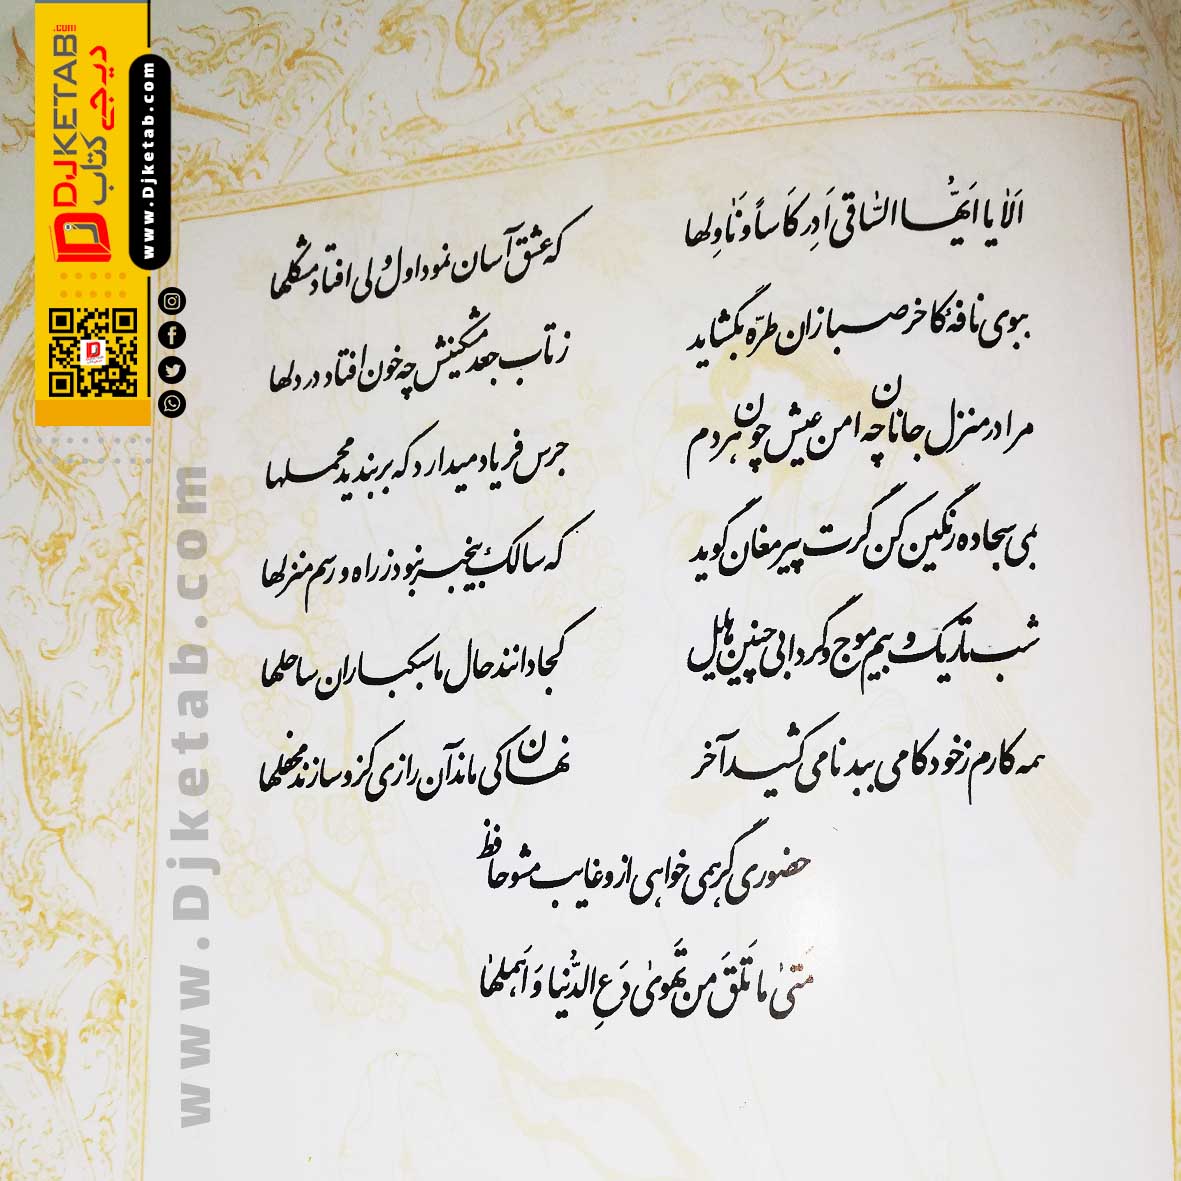 DJKETAB.com
دیجی کتاب
www.Djketab.com
www.Djketab.com
اَلا یا اَیُّهَا السّاقی اَدِر کَاساً وَ ناوِلها
که عشق آسان نمود اول ولی افتاد مشکلها
ببوی نافهٔ کاخر صبا زان طرّه بگشاید
ز تاب جعد مشکینش چه خون افتاد در دلها
مرا در منزل جانان چه امن عیش چون هر دم
جرس فریاد میدارد که بربندید محملها
بمی سجاده رنگین کن گرت پیر مغان گوید
که سالک بیخبر نبود ز راه و رسم منزلها
شب تاریک و بیم موج و گردابی چنین هایل
کجا دانند حال ما سبکباران ساحلها
همه کارم ز خود کامی ببدنامی کشید آخر
نهان کی ماند آن رازی کزو سازند محفلها
حضوری گر همی خواهی ازو غایب مشو حافظ
مَتیٰ ما تَلقَ مَن تَهویٰ دَعِ الدُّنیا وَ اَهملها